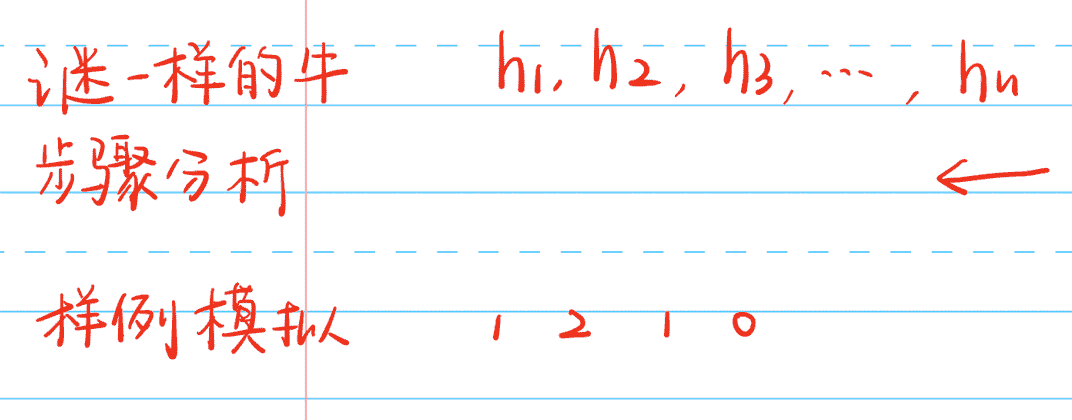 谜一样的牛 h1, h2, h3, ..., hn
步骤分析 ←
样例模拟 1 2 1 0